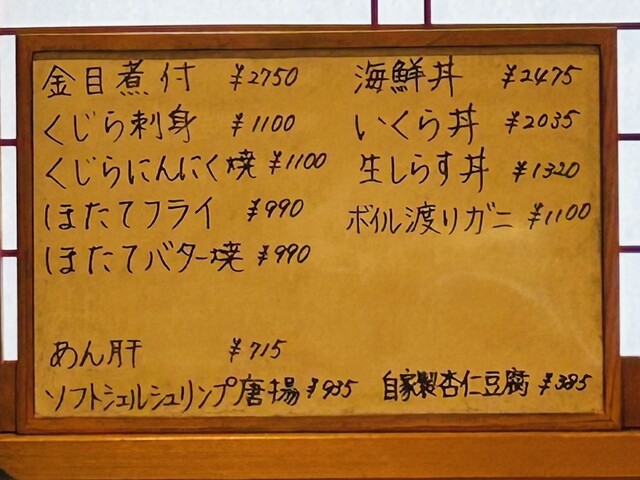 金目煮付 ¥2750
くじら刺身 ¥1100
くじらにんにく焼 ¥1100
ほたてフライ ¥990
ほたてバター焼 ¥990
あん肝 ¥715
ソフトシェルシュリンプ唐揚 ¥935
海鮮丼 ¥2475
いくら丼 ¥2035
生しらす丼 ¥1320
ボイル渡りガニ ¥1100
自家製杏仁豆腐 ¥385